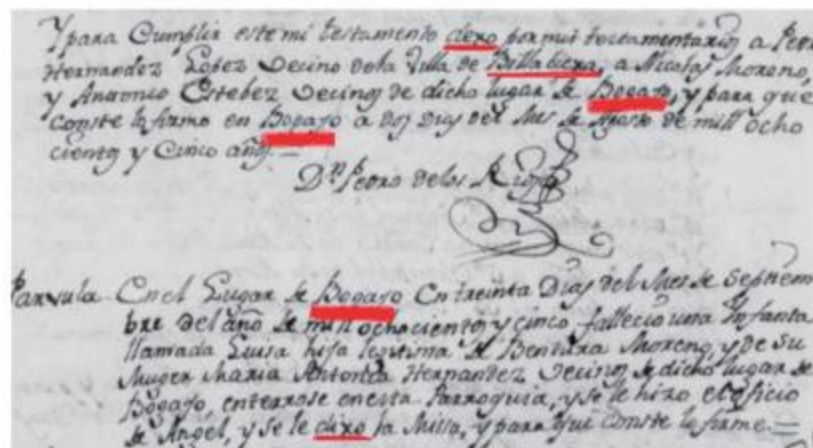 Y para Cumplir este mi testamento dexo por mis testamentarios a Pedro
Hernandez Lopez Vecino de la Villa de Billabiexa, a Nicolas Moreno,
y Antonio Estebez Vecinos de dicho lugar de Bogajo, y para que
conste lo firmo en Bogajo a dos Dias del Mes de Agosto de mill ocho
cientos y Cinco años.
Dn. Pedro de los Rios
Parvula En el Lugar de Bogajo En treinta Dias del Mes de Septiem
bre del año de mill ochocientos y cinco fallecio una Infanta
llamada Luisa hija lexitima de Bentura Moreno, y de su
Muger Maria Antonia Hernandez Vecinos de dicho lugar de
Bogajo, enterrose en esta Parroquia, y se le hizo el oficio
de Angel, y se le dixo la Missa, y para que conste lo firme.